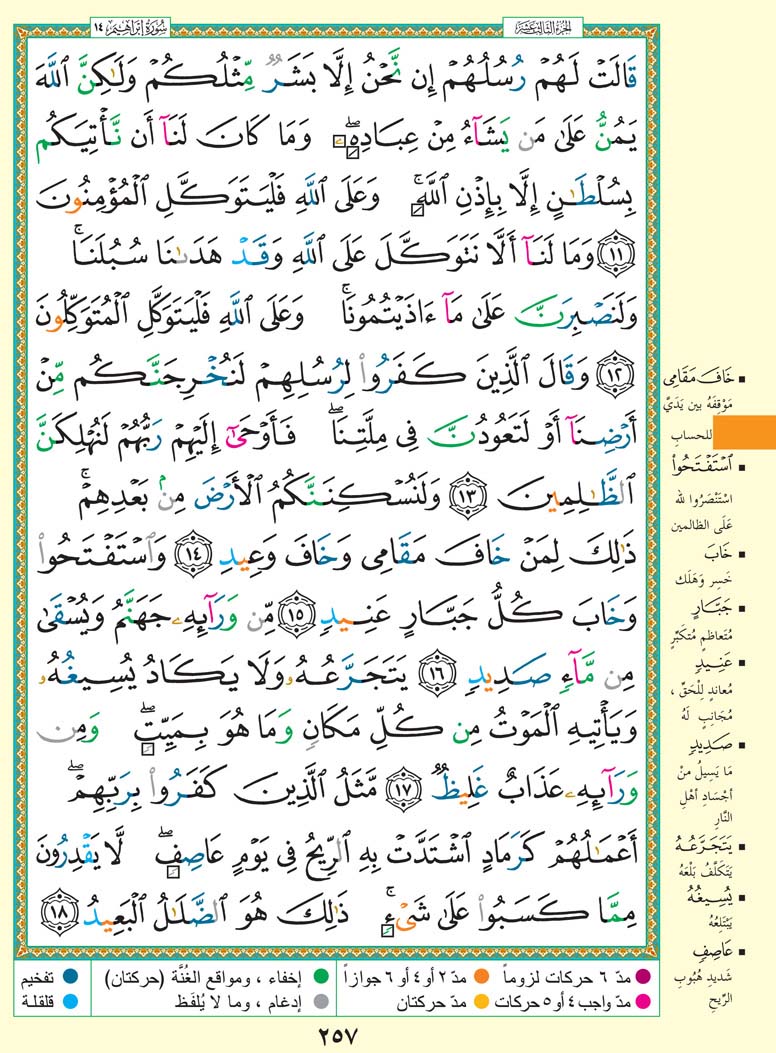 سُورَةُ إِبْرَاهِيم ١٤
الجزء الثالث عشر
قَالَتْ لَهُمْ رُسُلُهُمْ إِن نَّحْنُ إِلَّا بَشَرٌ مِّثْلُكُمْ وَلَٰكِنَّ ٱللَّهَ
يَمُنُّ عَلَىٰ مَن يَشَآءُ مِنْ عِبَادِهِۦ ۖ وَمَا كَانَ لَنَآ أَن نَّأْتِيَكُم
بِسُلْطَٰنٍ إِلَّا بِإِذْنِ ٱللَّهِ ۚ وَعَلَى ٱللَّهِ فَلْيَتَوَكَّلِ ٱلْمُؤْمِنُونَ
١١ وَمَا لَنَآ أَلَّا نَتَوَكَّلَ عَلَى ٱللَّهِ وَقَدْ هَدَىٰنَا سُبُلَنَا ۚ
وَلَنَصْبِرَنَّ عَلَىٰ مَآ ءَاذَيْتُمُونَا ۚ وَعَلَى ٱللَّهِ فَلْيَتَوَكَّلِ ٱلْمُتَوَكِّلُونَ
١٢ وَقَالَ ٱلَّذِينَ كَفَرُوا۟ لِرُسُلِهِمْ لَنُخْرِجَنَّكُم مِّنْ
أَرْضِنَآ أَوْ لَتَعُودُنَّ فِى مِلَّتِنَا ۖ فَأَوْحَىٰٓ إِلَيْهِمْ رَبُّهُمْ لَنُهْلِكَنَّ
ٱلظَّٰلِمِينَ ١٣ وَلَنُسْكِنَنَّكُمُ ٱلْأَرْضَ مِنۢ بَعْدِهِمْ ۚ
ذَٰلِكَ لِمَنْ خَافَ مَقَامِى وَخَافَ وَعِيدِ ١٤ وَٱسْتَفْتَحُوا۟
وَخَابَ كُلُّ جَبَّارٍ عَنِيدٍ ١٥ مِّن وَرَآئِهِۦ جَهَنَّمُ وَيُسْقَىٰ
مِن مَّآءٍ صَدِيدٍ ١٦ يَتَجَرَّعُهُۥ وَلَا يَكَادُ يُسِيغُهُۥ
وَيَأْتِيهِ ٱلْمَوْتُ مِن كُلِّ مَكَانٍ وَمَا هُوَ بِمَيِّتٍ ۖ وَمِن
وَرَآئِهِۦ عَذَابٌ غَلِيظٌ ١٧ مَّثَلُ ٱلَّذِينَ كَفَرُوا۟ بِرَبِّهِمْ ۖ
أَعْمَٰلُهُمْ كَرَمَادٍ ٱشْتَدَّتْ بِهِ ٱلرِّيحُ فِى يَوْمٍ عَاصِفٍ ۖ لَّا يَقْدِرُونَ
مِمَّا كَسَبُوا۟ عَلَىٰ شَىْءٍ ۚ ذَٰلِكَ هُوَ ٱلضَّلَٰلُ ٱلْبَعِيدُ ١٨
خَافَ مَقَامِى
مَوْقِفَهُ بين يَدَيَّ
للحساب
ٱسْتَفْتَحُوا۟
اسْتَنْصَرُوا لله
عَلَى الظالمين
خَابَ
خَسِر وَهَلَك
جَبَّارٍ
مُتَعاظمٍ مُتكَبِّرٍ
عَنِيدٍ
مُعاندٍ لِلْحَقِّ ،
مُجَانِبٍ لَهُ
صَدِيدٍ
مَا يَسِيلُ مِنْ
أجْسَادِ أهْلِ
النَّارِ
يَتَجَرَّعُهُ
يَتَكَلَّفُ بَلْعَهُ
يُسِيغُهُ
يَبْتَلِعُهُ
عَاصِفٍ
شَديدِ هُبُوبِ
الرِّيحِ
مدّ ٦ حركات لزوماً
مدّ ٢ أو ٤ أو ٦ جوازاً
إخفاء ، ومواقع الغُنَّة (حركتان)
تفخيم
مدّ واجب ٤ أو ٥ حركات
مدّ حركتان
إدغام ، وما لا يُلفَظ
قلقلة
٢٥٧